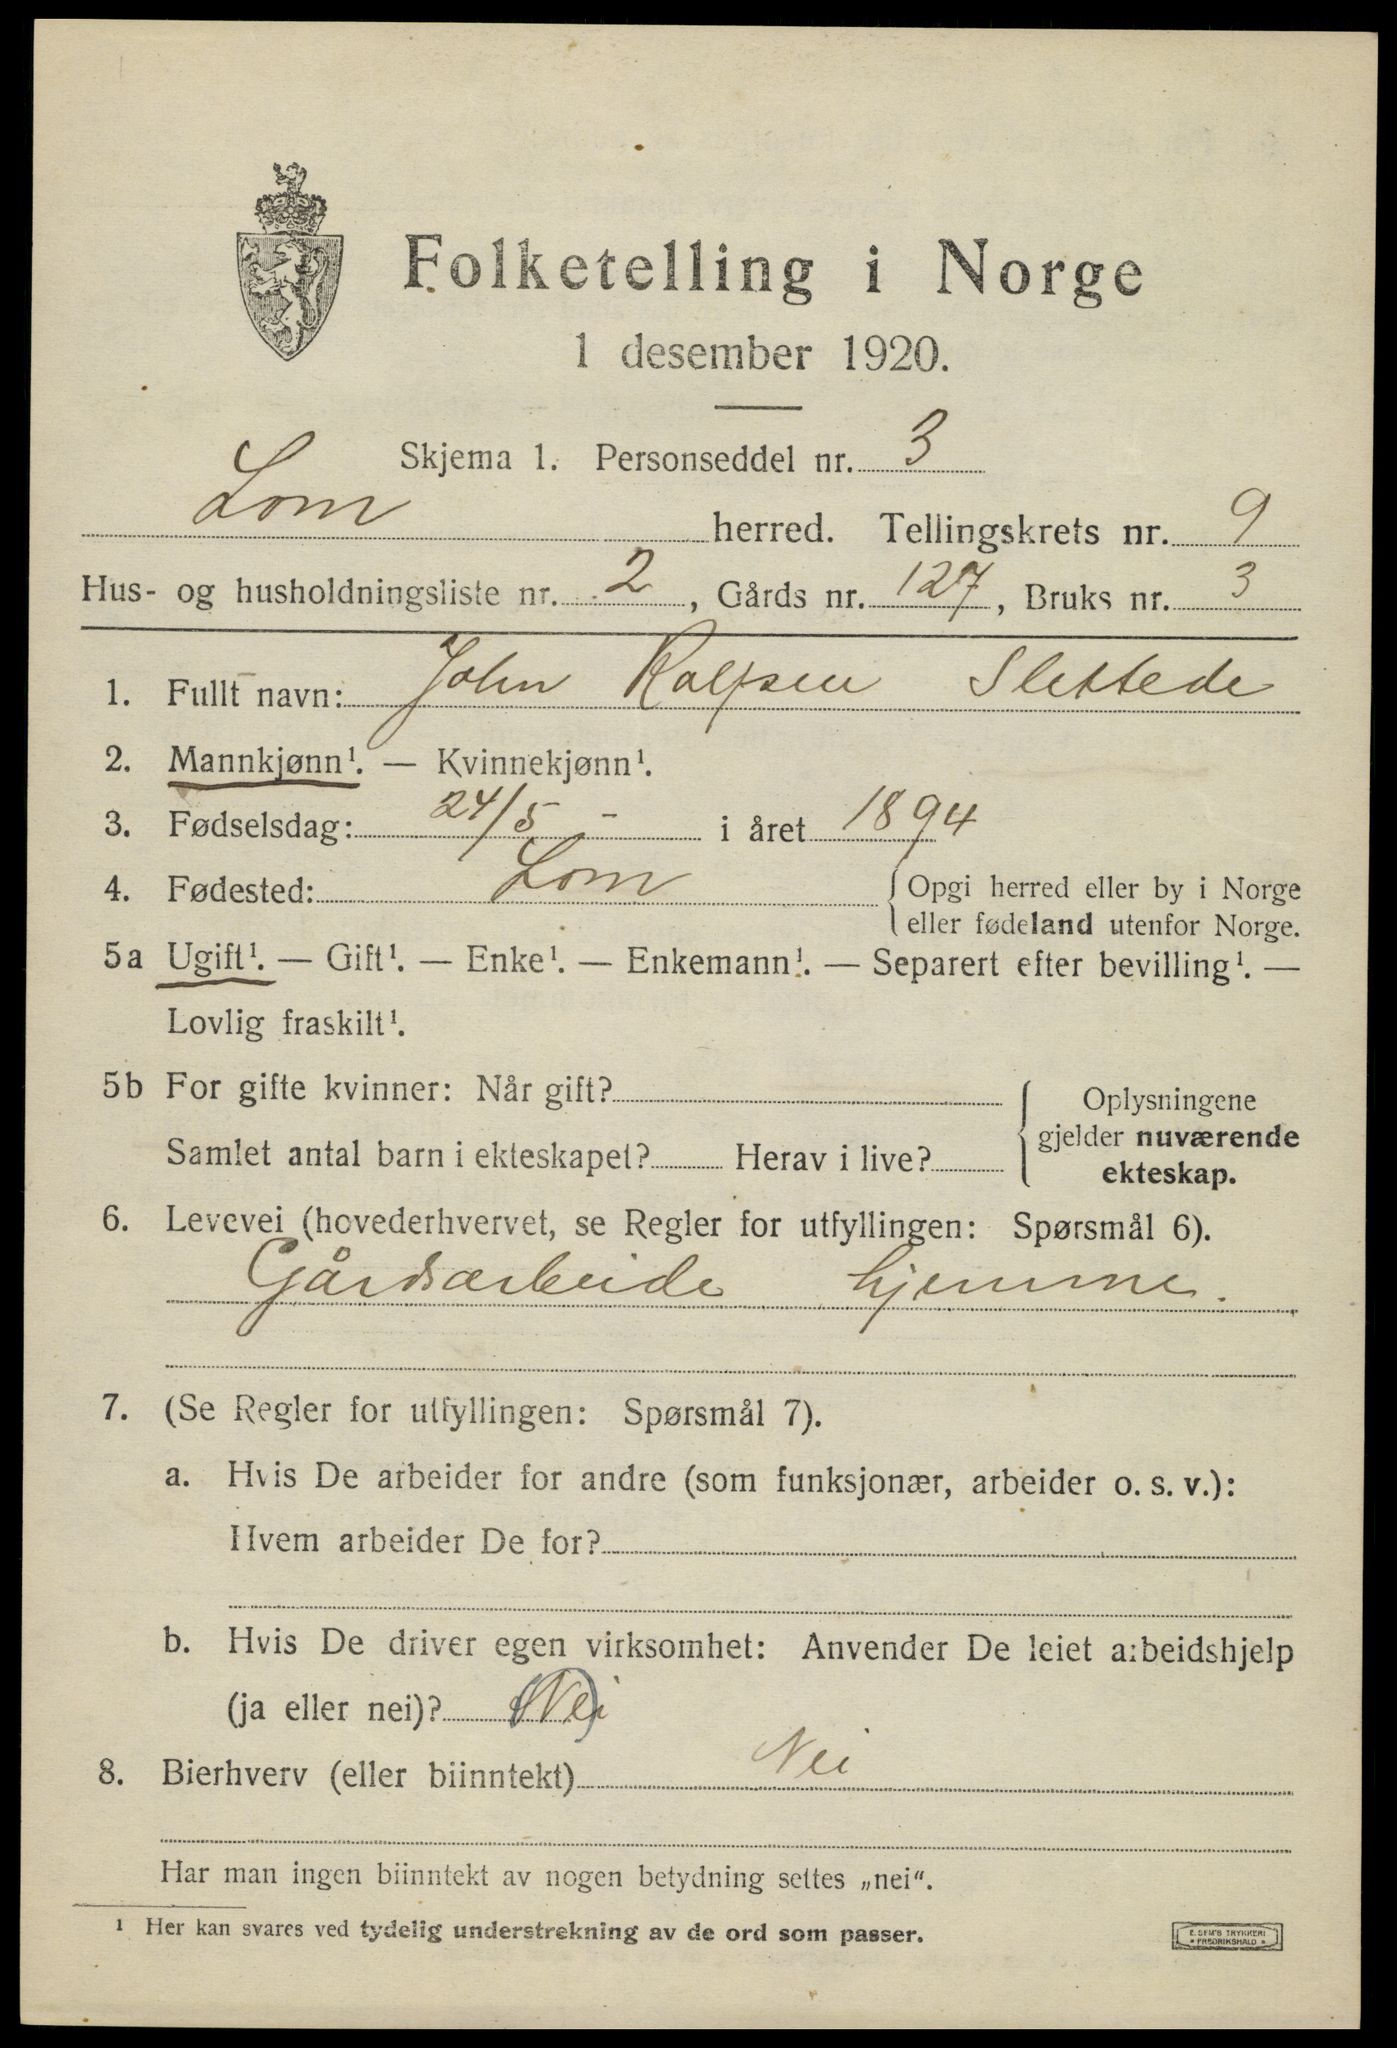 Folketelling i Norge
1 desember 1920.
Skjema 1. Personseddel nr. 3
Lom herred. Tellingskrets nr. 9
Hus- og husholdningsliste nr. 2, Gårds nr. 127, Bruks nr. 3
1. Fullt navn: John Rolfsen Slettede
2. Mannkjønn¹. — Kvinnekjønn¹.
3. Fødselsdag: 24/5 - i året 1894
4. Fødested: Lom {Opgi herred eller by i Norge
eller fødeland utenfor Norge.
5a Ugift¹. — Gift¹. — Enke¹. — Enkemann¹. — Separert efter bevilling¹. —
Lovlig fraskilt¹.
5b For gifte kvinner: Når gift?
Samlet antal barn i ekteskapet? Herav i live?
Oplysningene
gjelder nuværende
ekteskap.
6. Levevei (hovederhvervet, se Regler for utfyllingen: Spørsmål 6).
Gårdsarbeide hjemme.
7. (Se Regler for utfyllingen: Spørsmål 7).
a. Hvis De arbeider for andre (som funksjonær, arbeider o. s. v.):
Hvem arbeider De for?
b. Hvis De driver egen virksomhet: Anvender De leiet arbeidshjelp
(ja eller nei)? (Nei)
8. Bierhverv (eller biinntekt) Nei
Har man ingen biinntekt av nogen betydning settes „nei“.
¹ Her kan svares ved tydelig understrekning av de ord som passer.
E. SEM'S TRYKKERI
* FREDRIKSHALD *